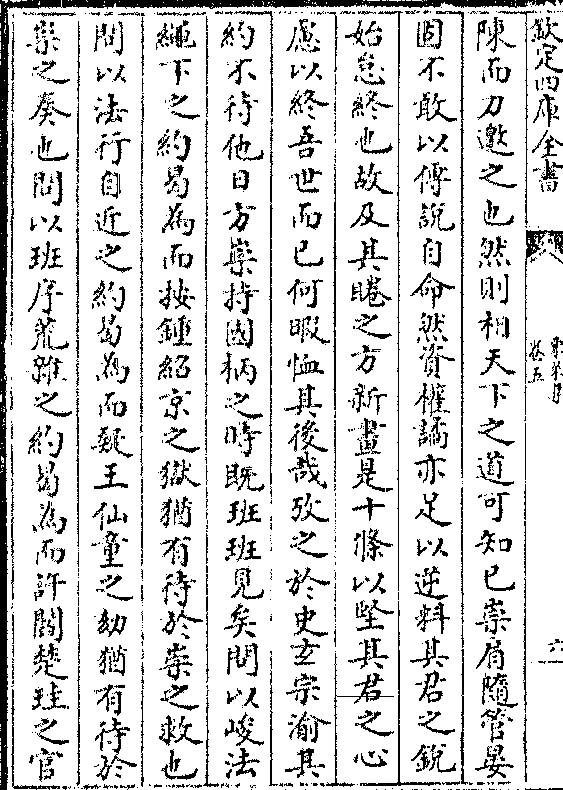 欽定四庫全書
卷五
六
陳而力邀之也然則相天下之道可知已崇肩隨管晏
固不敢以傅說自命然資權譎亦足以逆料其君之銳
始怠終也故及其睠之方新畫是十條以堅其君之心
慮以終吾世而已何暇恤其後哉攷之於史玄宗渝其
約不待他日方崇持國柄之時既班班見矣問以峻法
繩下之約曷為而按鍾紹京之獄猶有待於崇之救也
問以法行自近之約曷為而疑王仙童之劾猶有待於
崇之奏也問以班序荒雜之約曷為而許閻楚珪之官